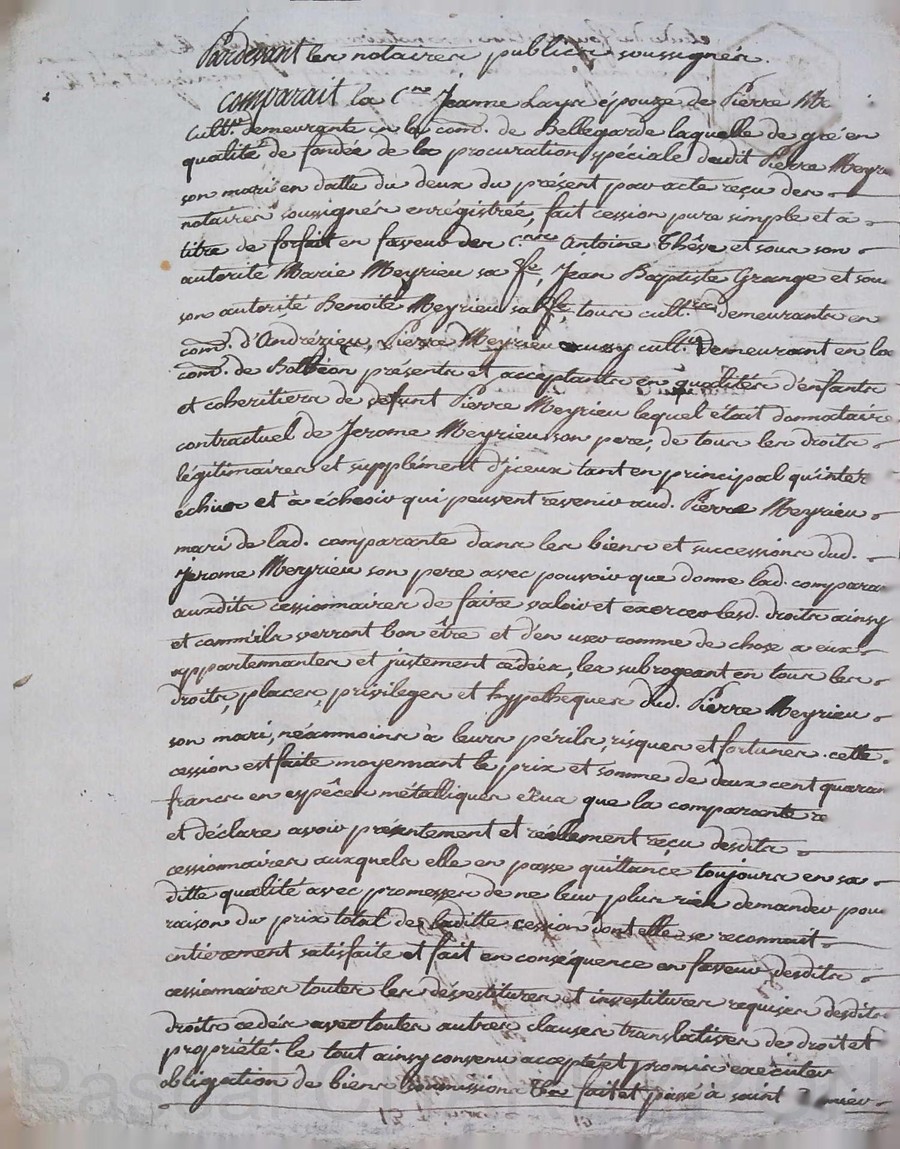 Pardevant les notaires publics soussignés.
comparait la C.ne Jeanne Layr épouze de Pierre Me
cult.r demeurante en la com.e de Bellegarde laquelle de gré en
qualité de fondée de la procuration spéciale dudit Pierre Meyri
son mari en datte du deux du présent par acte reçu des
notaires soussignés enrégistrée, fait cession pure simple et à
titre de forfait en faveur des C.ens Antoine Thêve et sous son
autorité Marie Meyrieu sa f.e, Jean Baptiste Grange et sou
son autorité Benoite Meyrieu sa f.e, tous cult.rs demeurants en
com.e d'Andrézieu, Pierre Meyrieu aussy cult.r demeurant en la
com.e de Bothéon présents et acceptants en qualités d'enfants
et coheritiers de defunt Pierre Meyrieu lequel était donnataire
contractuel de Jerome Meyrieu son pere, de tous les droits
légitimaires et supplément d'jceux tant en principal qu'intér
échus et à échoir qui peuvent revenir aud. Pierre Meyrieu
mari de lad. comparante dans les biens et successions dud.
Jerome Meyrieu son pere avec pouvoir que donne lad. compara
auxdits cessionnaires de faire valoir et exercer lesd. droits ainsy
et comm'ils verront bon être et d'en user comme de chose à eux
appartennantes et justement cédées, les subrogeant en tous les
droits, places, privileges et hypotheques dud. Pierre Meyrieu
son mari, néammoins à leurs périls, risques et fortunes. cette
cession est faite moyennant le prix et somme de deux cent quaran
francs en espêces métalliques que la comparante a
et déclare avoir présentement et réellement reçu desdits
cessionnaires auxquels elle en passe quittance toujours en sa
ditte qualité avec promesses de ne leur plus rien demander pour
raison du prix total de laditte cession dont elle se reconnait
entierement satisfaite et fait en conséquence en faveur desdits
cessionnaires toutes les dévestitures et investitures requises desdits
droits cedés avec toutes autres clauses translatives de droit et
propriété. le tout ainsy convenu accepté et promis exécuter
obligation de biens soumissions &a fait et passé à saint